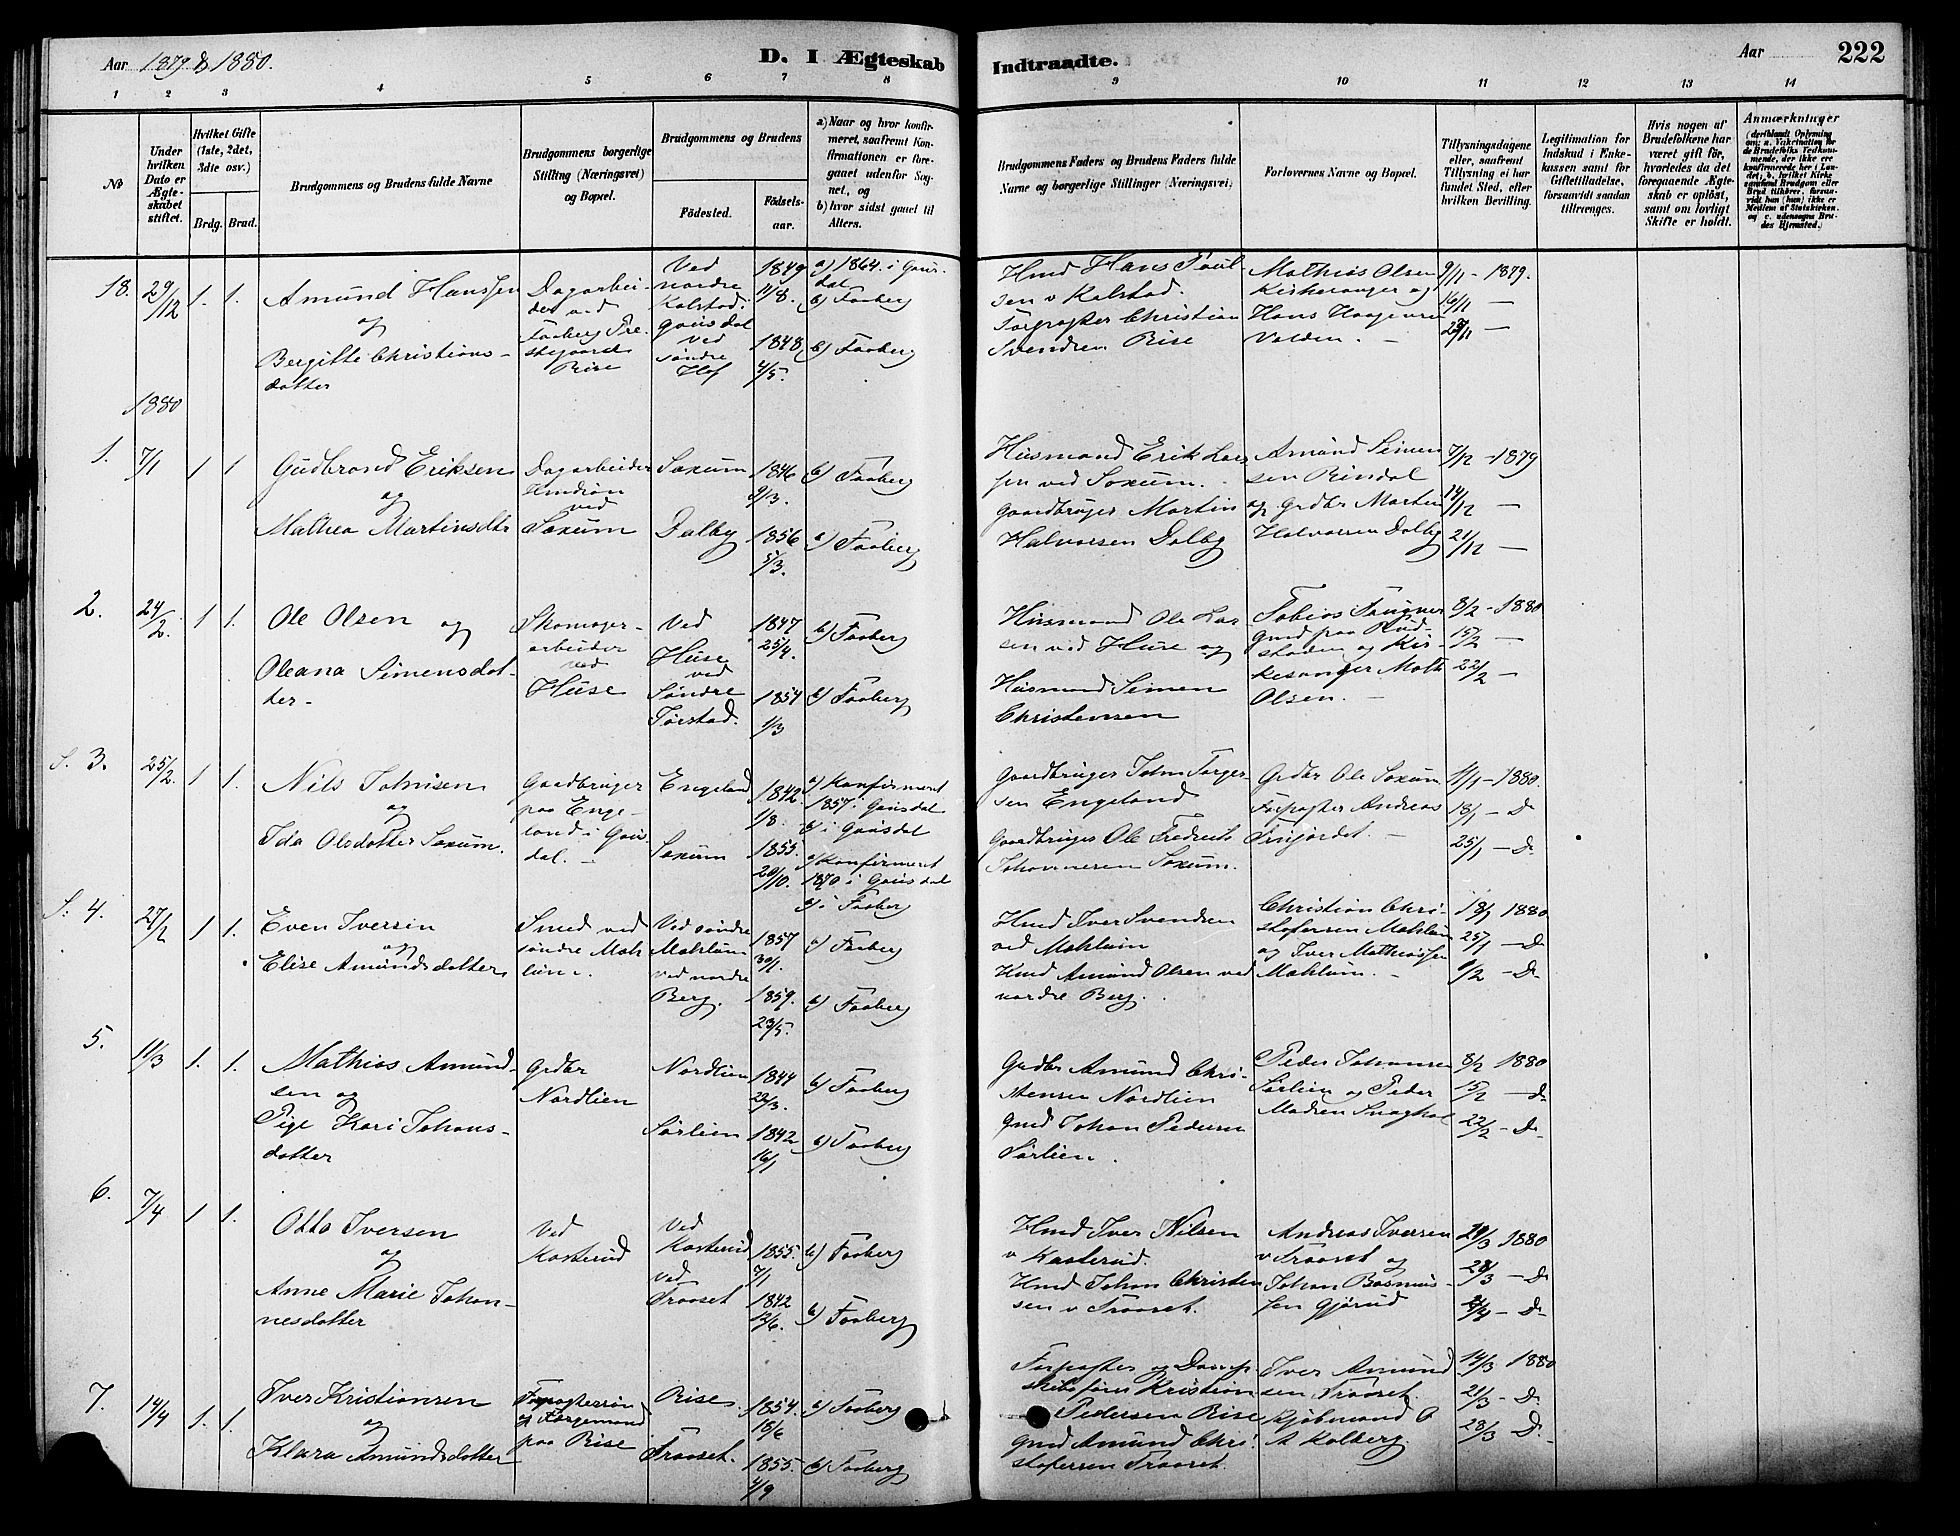 Aar 1879 & 1880.
D. I Ægteskab
Indtraadte.
Aar
222
1 2 3 4 5 6 7 8 9 10 11 12 13 14
No
Under hvilken Dato er Ægteskabet stiftet.
Hvilket Gifte (1ste, 2det, 3die osv.)
Brdg. Brud.
Brudgommens og Brudens fulde Navne
Brudgommens borgerlige Stilling (Næringsvei) og Bopæl.
Brudgommens og Brudens
Fødested.
Fødselsaar.
a) Naar og hvor konfirmeret, saafremt Konfirmationen er foregaaet udenfor Sognet, og
b) hvor sidst gaaet til Alters.
Brudgommens Faders og Brudens Faders fulde Navne og borgerlige Stillinger (Næringsvei)
Forlovernes Navne og Bopæl.
Tillysningsdagene eller, saafremt Tillysning ei har fundet Sted, efter hvilken Bevilling.
Legitimation for Indskud i Enkekassen samt for Giftetilladelse, forsaavidt saadan tiltrænges.
Hvis nogen af Brudefolkene har været gift før, hvorledes da det foregaaende Ægteskab er opløst, samt om lovligt Skifte er holdt.
Anmærkninger
18. 29/12 1. 1.
Amund Hanssen
og
Bergitte Christians-
datter
Dagarbei-
der ved
Faaberg Pre-
stegaard
Rise
Ved
nordre
Kalstad
Gausdal
ved
søndre
Hof
1849
11/8.
1848
4/5.
a) 1864. i Gaus-
dal
b) Faaberg
b) Faaberg
Hmd Hans Paul-
sen v Kalstad.
Forpagter Christian
Svendsen Rise
Mathias Olsen
Kirkesanger og
Hans Haagensen
Volden. -
9/11 - 1879.
16/11 -
23/11 -
1880
1. 7/1 1 1
Gudbrand Eriksen
og
Mathea Martinsdtr
Dagarbeider
Hmdsøn
ved
Saxum
Saxum
Dalby
1846
9/3.
1856
5/3.
b) Faaberg
b) Faaberg
Husmand Erik Lar-
sen ved Saxum.
Gaardbruger Martin
Halvorsen Dalby
Amund Simen
sen Rindal
og Grdbr Martin
Halvorsen Dalby
7/12 - 1879
14/12 -
21/12 -
2. 24/2. 1 1.
Ole Olsen og
Oleana Simensdat-
ter -
Skomager-
arbeider
ved
Huse
Ved
Huse
ved
Søndre
Jørstad.
1847
25/4.
1854
1/3
b) Faaberg
b) Faaberg
Husmand Ole Lar-
sen ved Huse og
Husmand Simen
Christensen
Tobias Fougner
Gmd paa Rud-
staden og Kir-
kesanger Math
Olsen. -
8/2 - 1880
15/2 -
22/2 -
S. 3. 25/2. 1 1.
Nils Johnsen
og
Ida Olsdatter Saxum.
Gaardbruger
paa Enge-
land i Gaus
dal. -
Engeland
Saxum
1842
1/8.
1855.
20/10.
a) Konfirmeret
1857 i Gausdal
b) i Gausdal
a) Konfirmeret
1870 i Gausdal
b) i Faaberg
Gaardbruger John Torger-
sen Engeland
Gaardbruger Ole Fredrik
Johannesen Saxum.
Grdbr Ole Saxum
Forpagter Andreas
11/1 - 1880.
18/1 - D
25/1 - D.
S. 4. 27/2 1 1.
Even Iversen
og
Elise Amundsdatter
Smed ved
søndre Mah-
lum.
Ved søndre
Mahlum
ved nordre
Berg.
1857
30/1.
1859.
23/5.
b) Faaberg
b) Faaberg
Hmd Iver Svendsen
ved Mahlum
Hmd Amund Olsen ved
nordre Berg.
Christian Chri-
stofersen Mahlum
og Iver Mathiassen
Mahlum. -
18/1 1880
25/1 - D
1/2 - D
5. 11/3 1. 1.
Mathias Amund-
sen og
Pige Kari Johans-
datter
Grdbr
Nordlien
Nordlien
Sørlien
1844
22/3.
1842
16/1
b) Faaberg
b) Faaberg
Grdbr Amund Chri-
stensen Nordlien
Gmd Johan Pedersen
Sørlien.
Peder Johansen
Sørlien og Peder
8/2 1880
15/2 - D
22/2 - D
6. 7/4 1 1.
Otto Iversen
og
Anne Marie Johan-
nesdatter
Ved
Kasterud
Ved
Kasterud
ved
Traaset
1855.
7/1
1842
12/6.
b) Faaberg
b) Faaberg
Hmd Iver Nilsen
v Kasterud.
Hmd Johan Christen
sen v Traaset.
Andreas Iversen
v Traaset og
Johan Rasmus-
sen Gjørud
21/3 1880
28/3 - D
- D
7. 14/4 1. 1.
Iver Kristiansen
og
Klara Amundsdatter
Forpagtersøn
og Færgemand
paa Rise
Rise
Traaset.
1854.
18/6
1855.
4/9
b) Faaberg
b) Faaberg
Forpagter og Damp-
skibsfører Kristian
Pedersen Rise
Gmd Amund Chri-
stofersen Traaset.
Iver Amund
sen Traaset.
Kjøbmand O
A Kolberg.
14/3 1880
21/3 - D
28/3 - D.